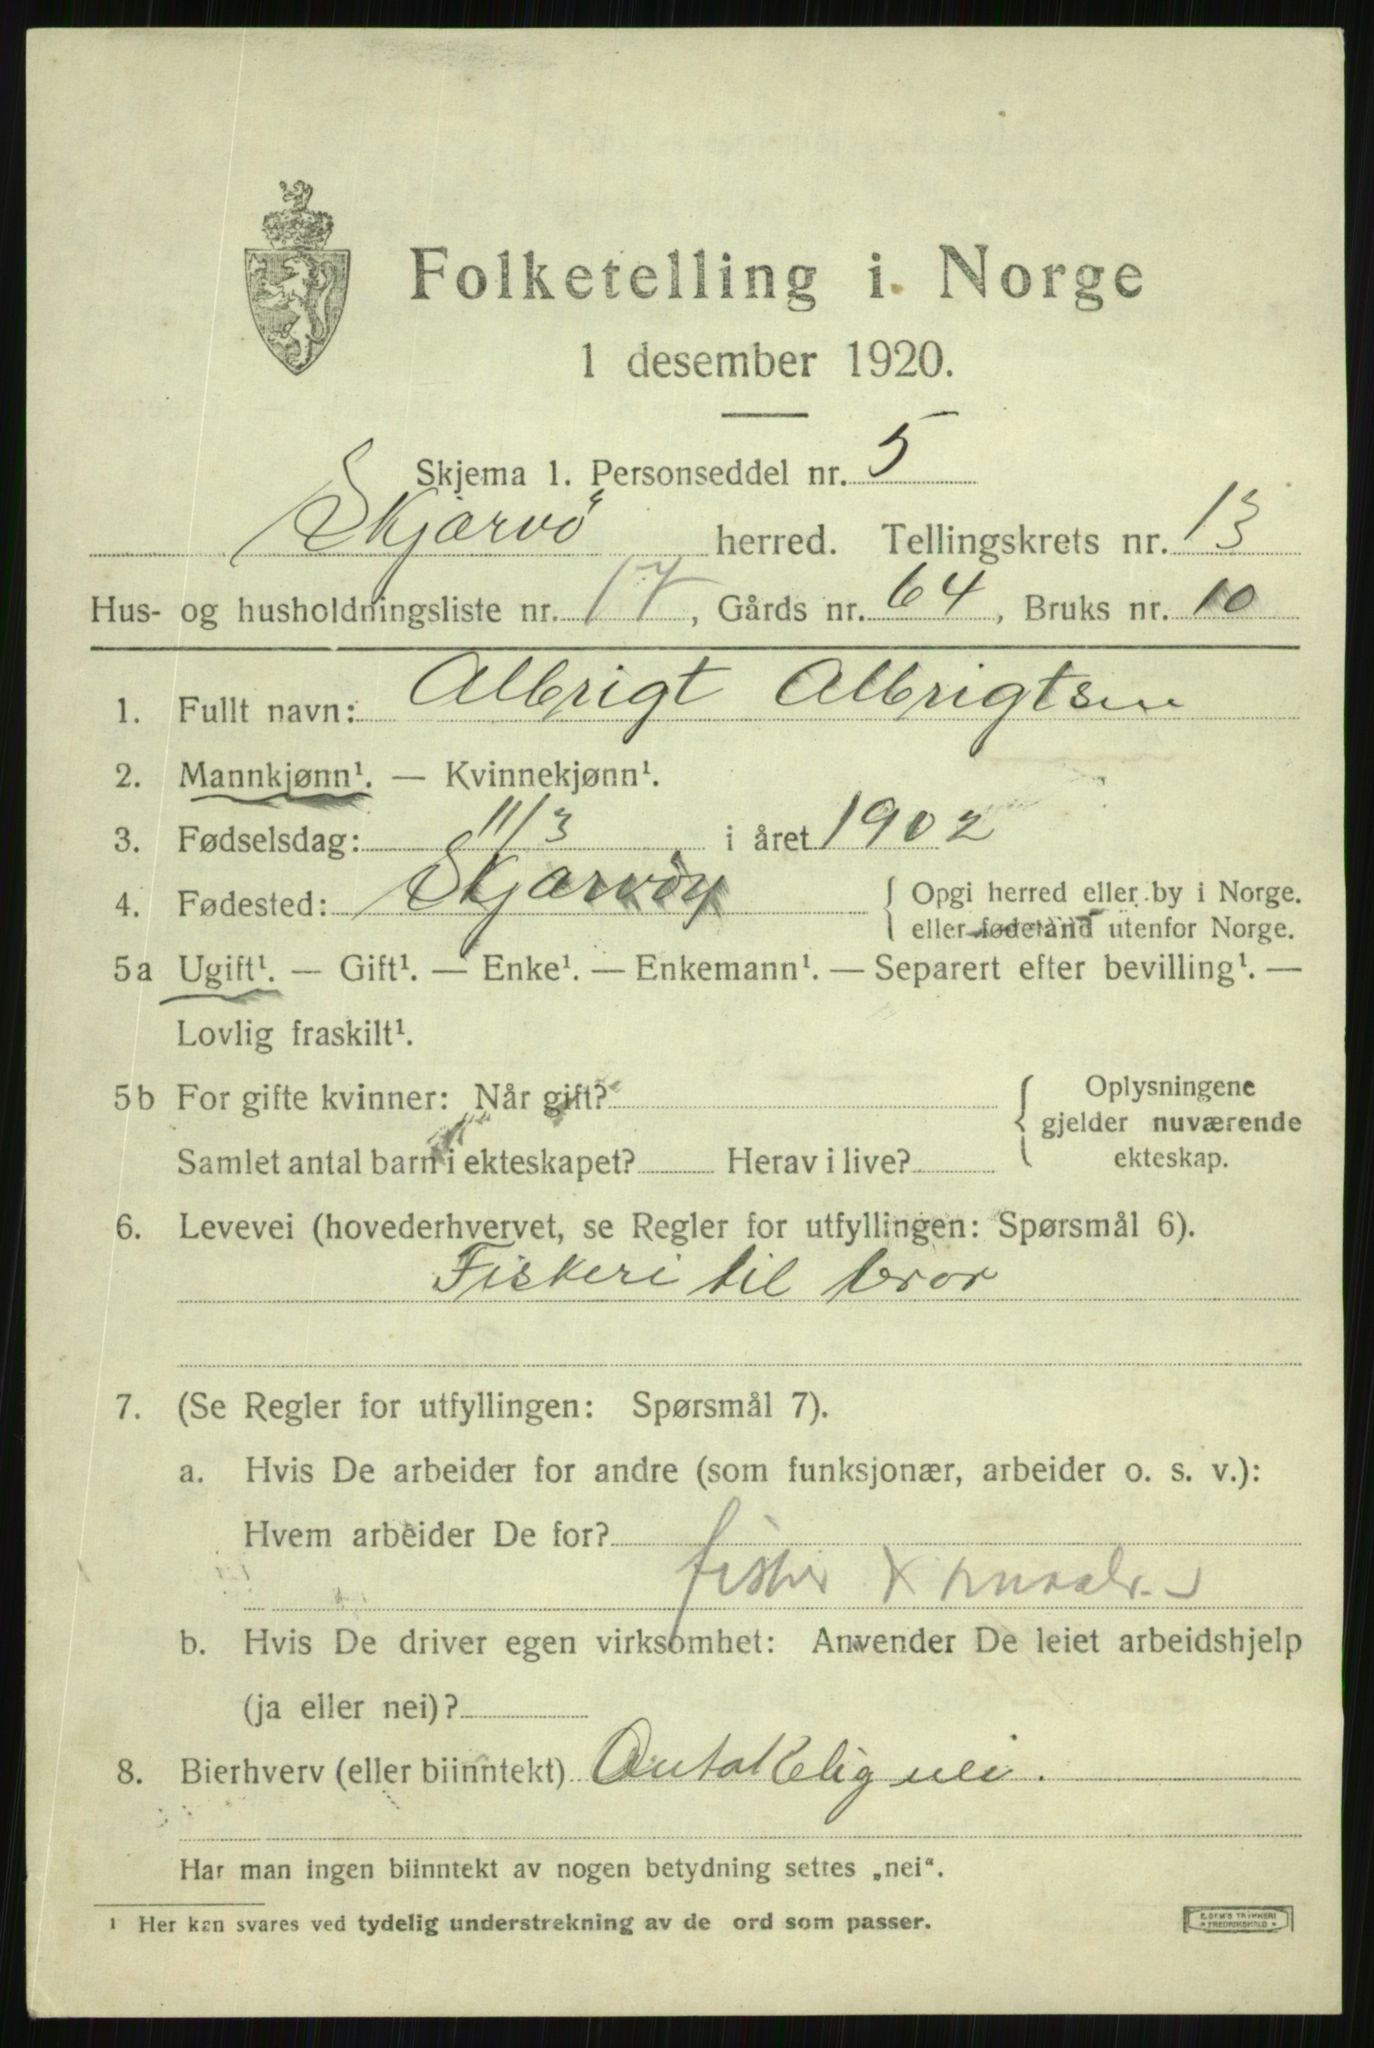 Folketelling i Norge
1 desember 1920.
Skjema 1. Personseddel nr. 5
Skjærvö herred. Tellingskrets nr. 13
Hus- og husholdningsliste nr. 17, Gårds nr. 64, Bruks nr. 10
1. Fullt navn: Albrigt Albrigtsen
2. Mannkjønn¹. — Kvinnekjønn¹.
3. Fødselsdag: 11/3 i året 1902
4. Fødested: Skjærvöy { Opgi herred eller by i Norge.
eller fødeland utenfor Norge.
5a Ugift¹. — Gift¹. — Enke¹. — Enkemann¹. — Separert efter bevilling¹. —
Lovlig fraskilt¹.
5b For gifte kvinner: Når gift? { Oplysningene
gjelder nuværende
Samlet antal barn i ekteskapet? Herav i live? ekteskap.
6. Levevei (hovederhvervet, se Regler for utfyllingen: Spørsmål 6).
Fiskeri til bror
7. (Se Regler for utfyllingen: Spørsmål 7).
a. Hvis De arbeider for andre (som funksjonær, arbeider o. s. v.):
Hvem arbeider De for?
fisker X
b. Hvis De driver egen virksomhet: Anvender De leiet arbeidshjelp
(ja eller nei)?
8. Bierhverv (eller biinntekt) nei.
Har man ingen biinntekt av nogen betydning settes „nei“.
¹ Her kan svares ved tydelig understrekning av de ord som passer.